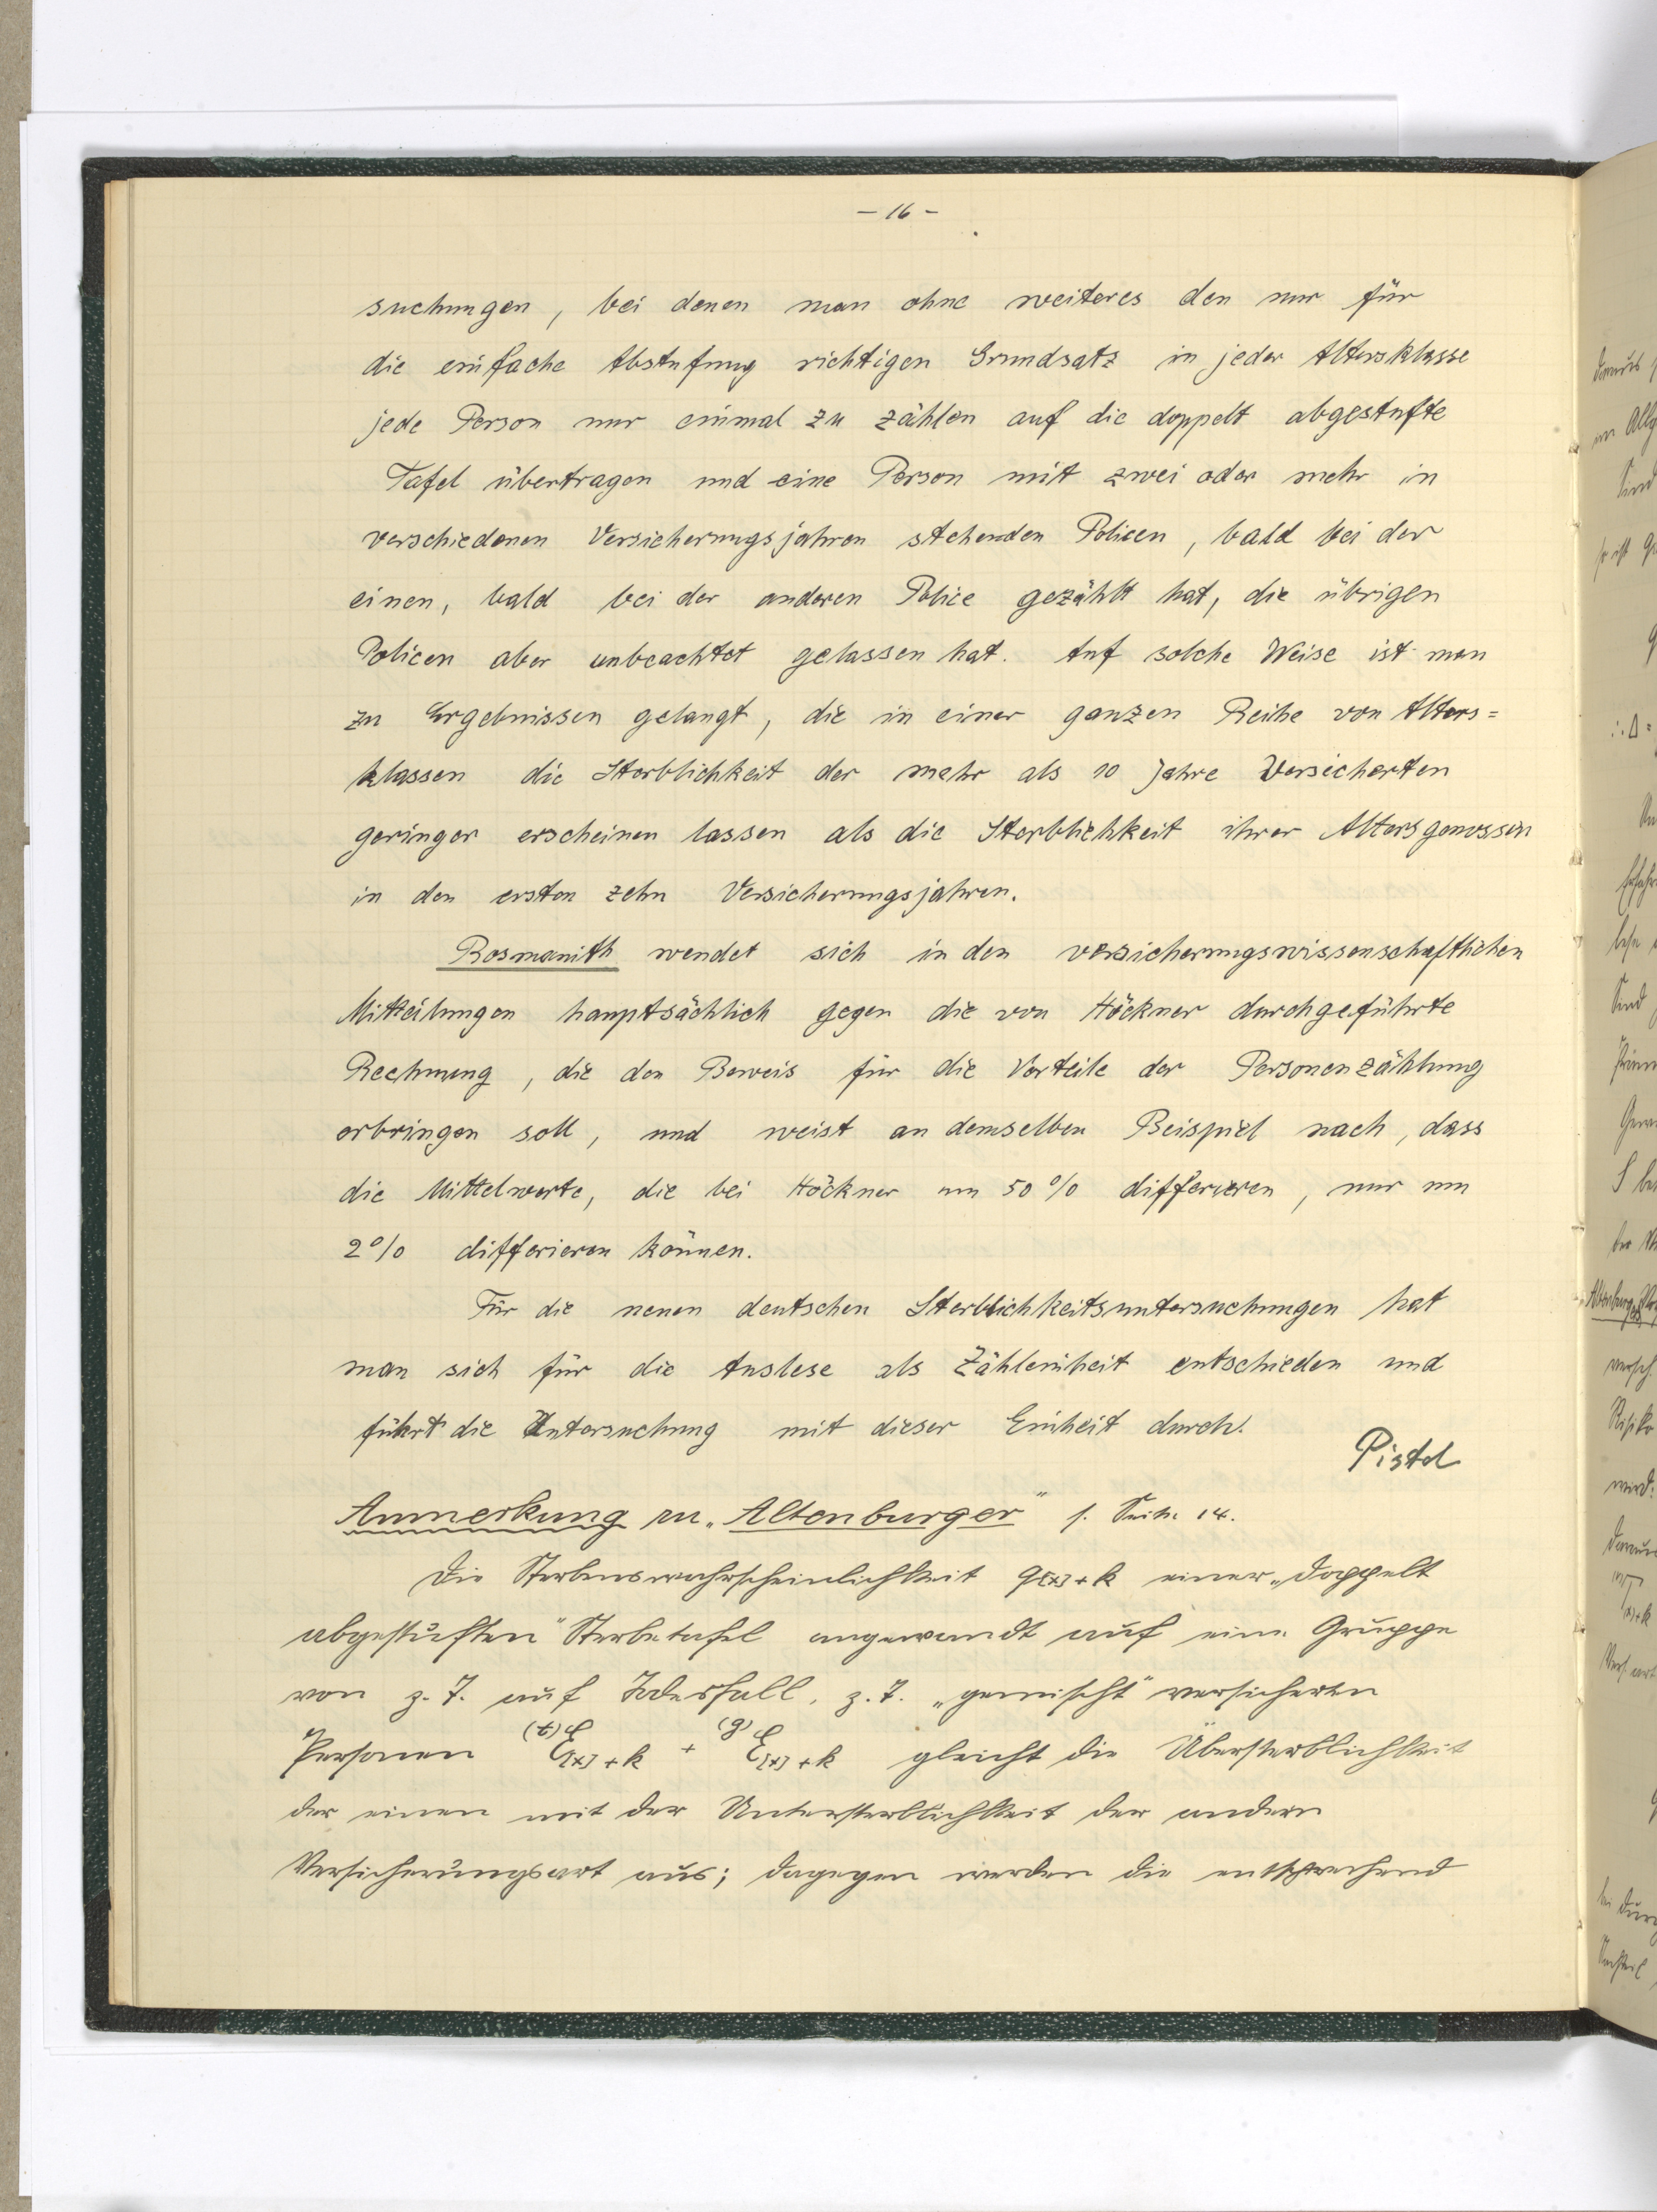 - 16 -
suchungen, bei denen man ohne weiteres den nur für
die einfache Abstufung richtigen Grundsatz in jeder Altersklasse
jede Person nur einmal zu zählen auf die doppelt abgestufte
Tafel übertragen und eine Person mit zwei oder mehr in
verschiedenen Versicherungsjahren stehenden Policen, bald bei der
einen, bald bei der anderen Police gezählt hat, die übrigen
Policen aber unbeachtet gelassen hat. Auf solche Weise ist man
zu Ergebnissen gelangt, die in einer ganzen Reihe von Alters=
klassen die Sterblichkeit der mehr als 10 Jahre Versicherten
geringer erscheinen lassen als die Sterblichkeit ihrer Altersgenossen
in den ersten zehn Versicherungsjahren.
Rosmanith wendet sich in den versicherungswissenschaftlichen
Mitteilungen hauptsächlich gegen die von Höckner durchgeführte
Rechnung, die den Beweis für die Vorteile der Personenzählung
erbringen soll, und weist an demselben Beispiel nach, dass
die Mittelwerte, die bei Höckner um 50 % differieren, nur um
2 % differieren können.
Für die neuen deutschen Sterblichkeitsuntersuchungen hat
man sich für die Auslese als Zähleinheit entschieden und
führt die Untersuchung mit dieser Einheit durch.
Pistel
Anmerkung zu „Altenburger" s. Seite 14.
Die Sterbenswahrscheinlichkeit q[x]+k einer „doppelt
abgestuften" Sterbetafel angewandt auf eine Gruppe
von z. T. auf Todesfall, z. T. „gemischt" versicherten
Personen (t)ℰ[x]+k + (g)ℰ[x]+k gleicht die Übersterblichkeit
der einen mit der Untersterblichkeit der andern
Versicherungsart aus; dagegen werden die entsprechend